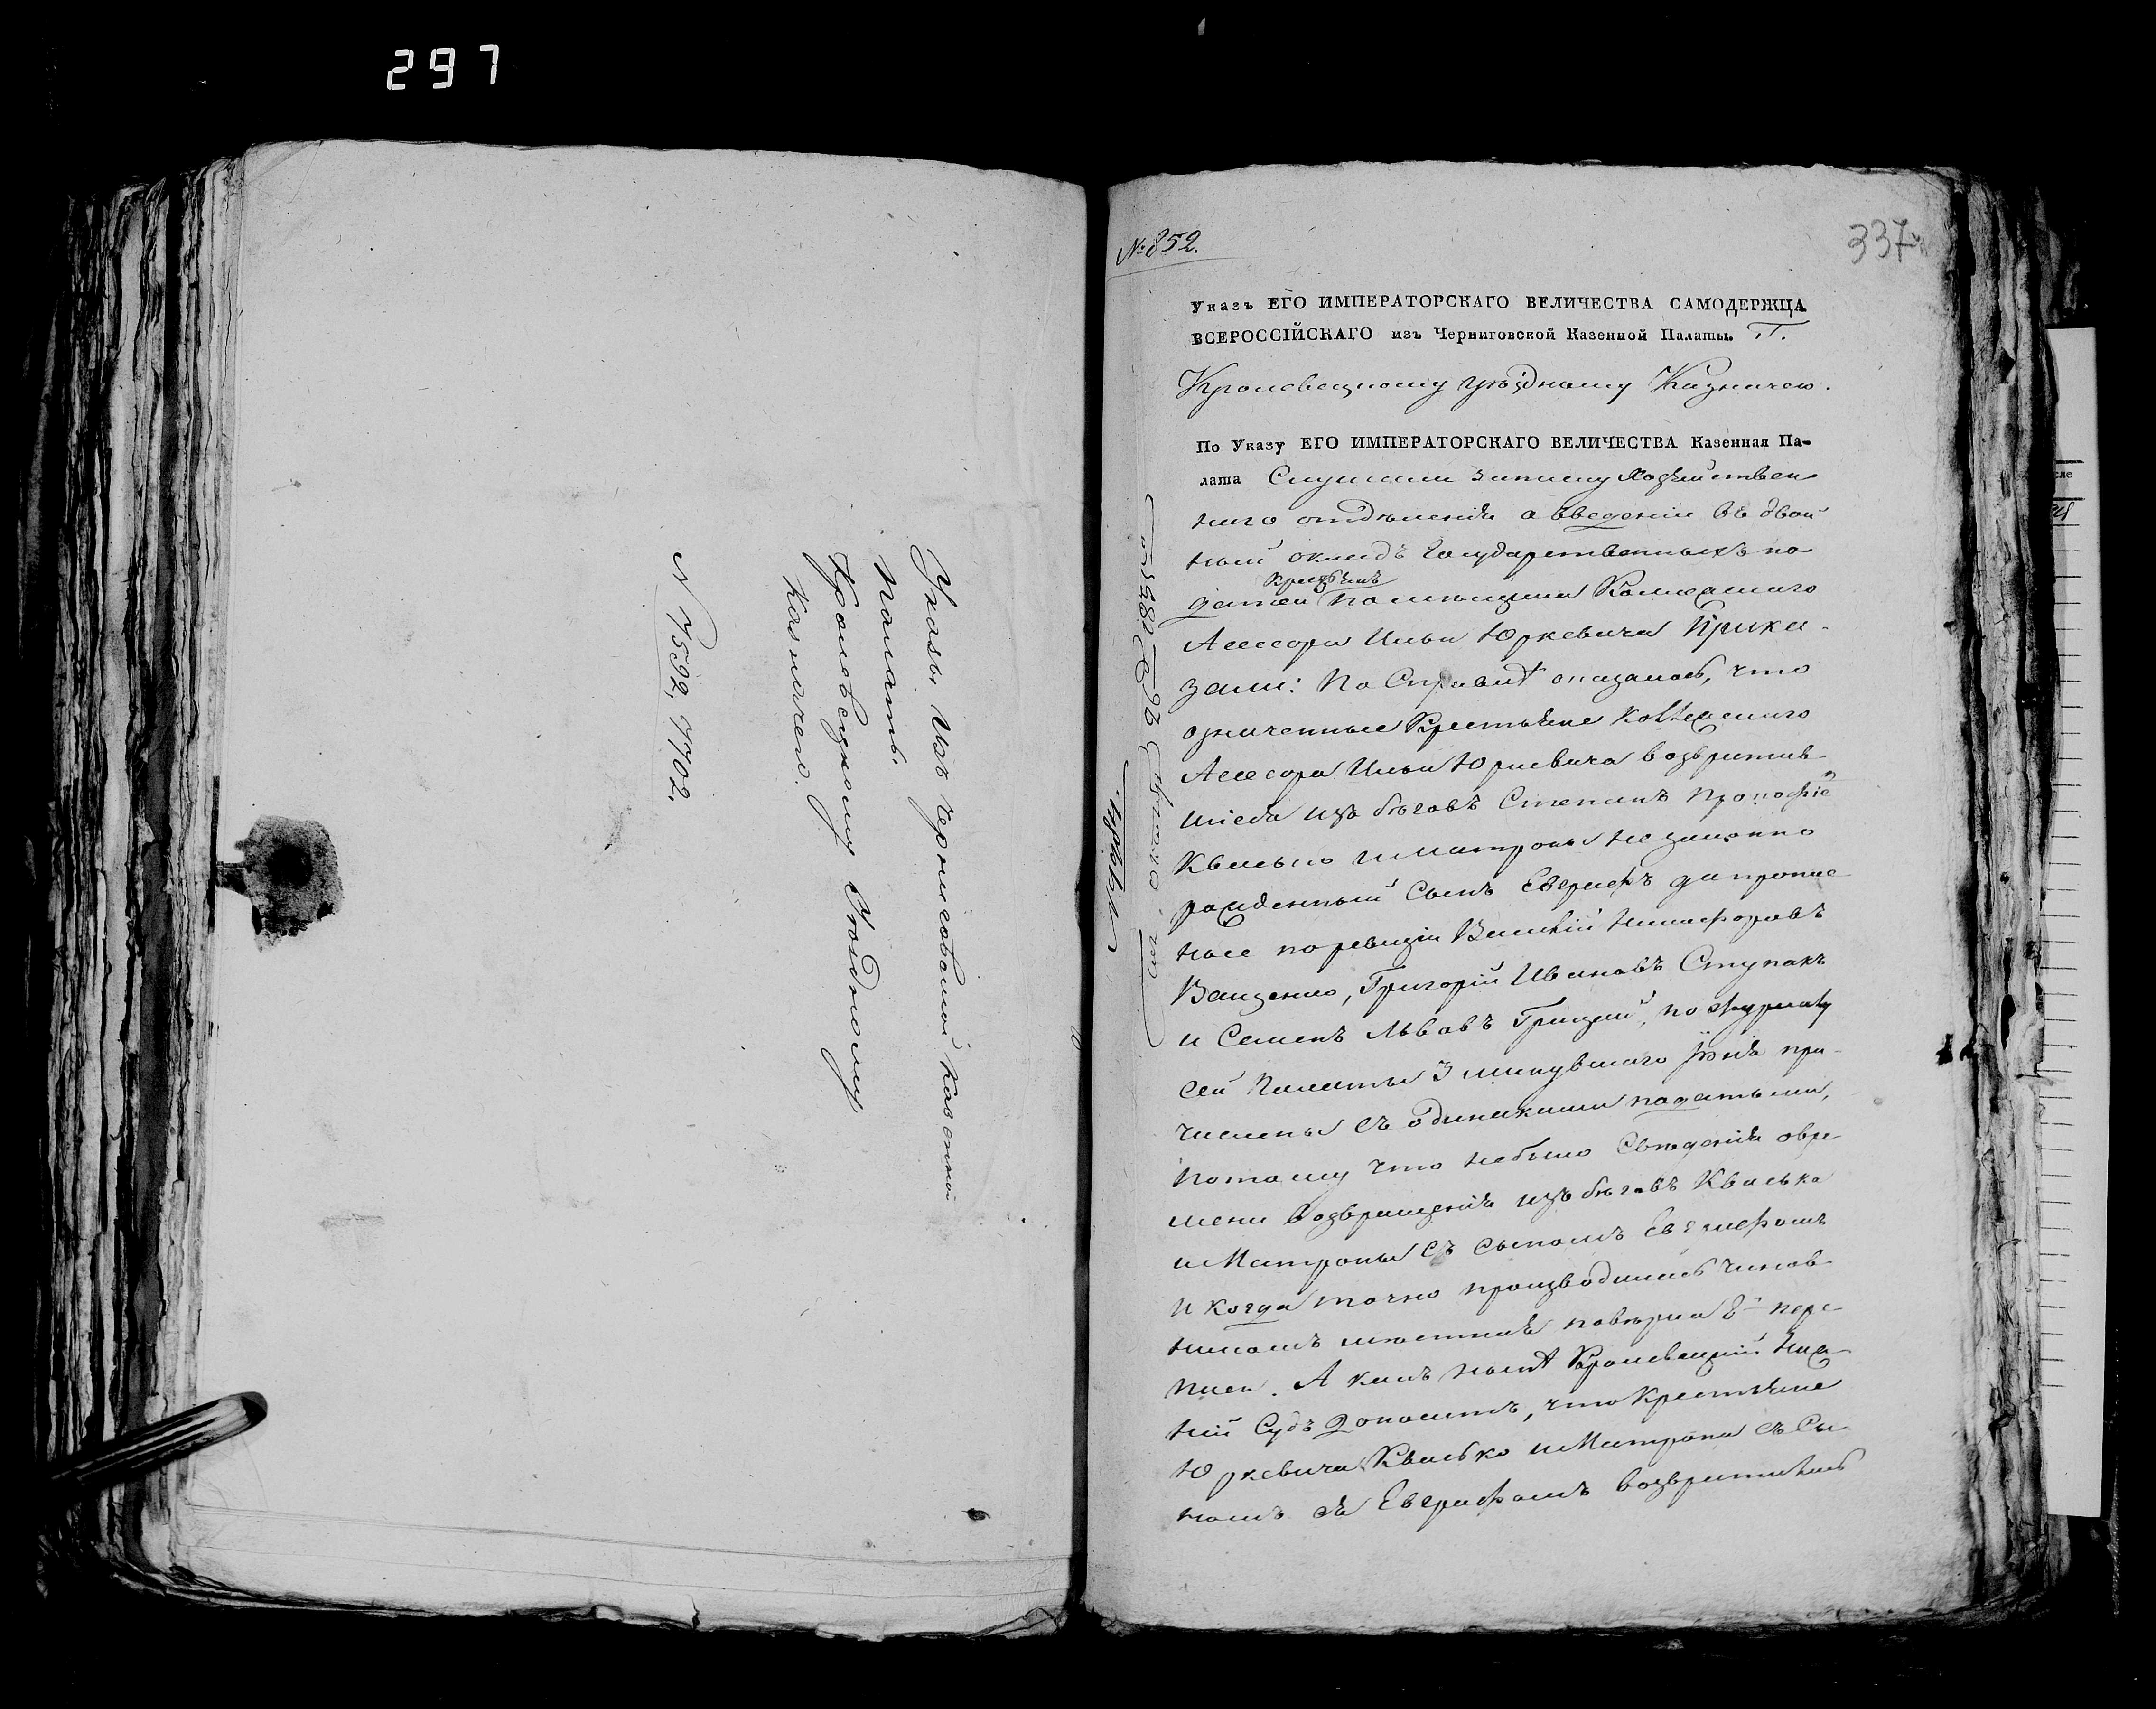 297
Указъ Изъ Черниговской Казенной
Палаты.
Кролевецкому Уѣздному
Казначею.
N 7592, 7702.
№ 852.
337
Указъ ЕГО ИМПЕРАТОРСКАГО ВЕЛИЧЕСТВА САМОДЕРЖЦА
ВСЕРОССІЙСКАГО изъ Черниговской Казенной Палаты. Г.
Кролевецкому уѣздному Казначею.
По Указу ЕГО ИМПЕРАТОРСКАГО ВЕЛИЧЕСТВА Казенная Па-
лата Слушали записку Хозяйствен
наго отдѣленія о введеніи въ двой
ный окладъ Государственныхъ по
крестьянъ
датей помѣщика Коллежскаго
Асессора Ильи Юркевича Прика-
зали: По Справкѣ оказалось, что
означенные Крестьяне Коллежскаго
Асессора Ильи Юркевича возвратив
шіеся изъ бѣговъ Степанъ Прокофіе
Квасько и Матроны незаконно
рожденный сынъ Евграфъ да пропис
ные по ревизіи Василій Никифоровъ
Ващенко, Григорій Ивановъ Ступакъ
и Семенъ Львовъ Грицай, по журналу
сей Палаты 3 минувшаго Іюня при-
числены съ одинакими податьми,
потому что небыло Свѣденія овре
мени возвращенія изъ бѣговъ Кваська
и Матроны съ сыномъ Евграфомъ
и когда точно производилась чинов
никомъ мѣстная повѣрка 8й пере
писи. А какъ нынѣ Кролевецкій Ниж
ній Судъ Доноситъ, что Крестьяне
Юркевича Квасько и Матрона съ Сы
номъ ея Евграфомъ возвратились